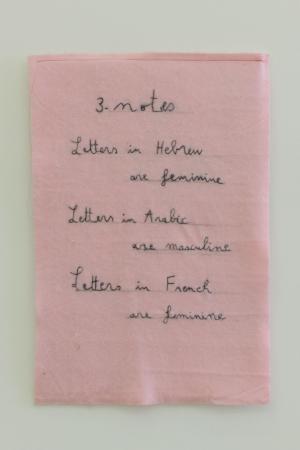 3-notes
Letters in Hebrew
are feminine
Letters in Arabic
are masculine
Letters in French
are feminine